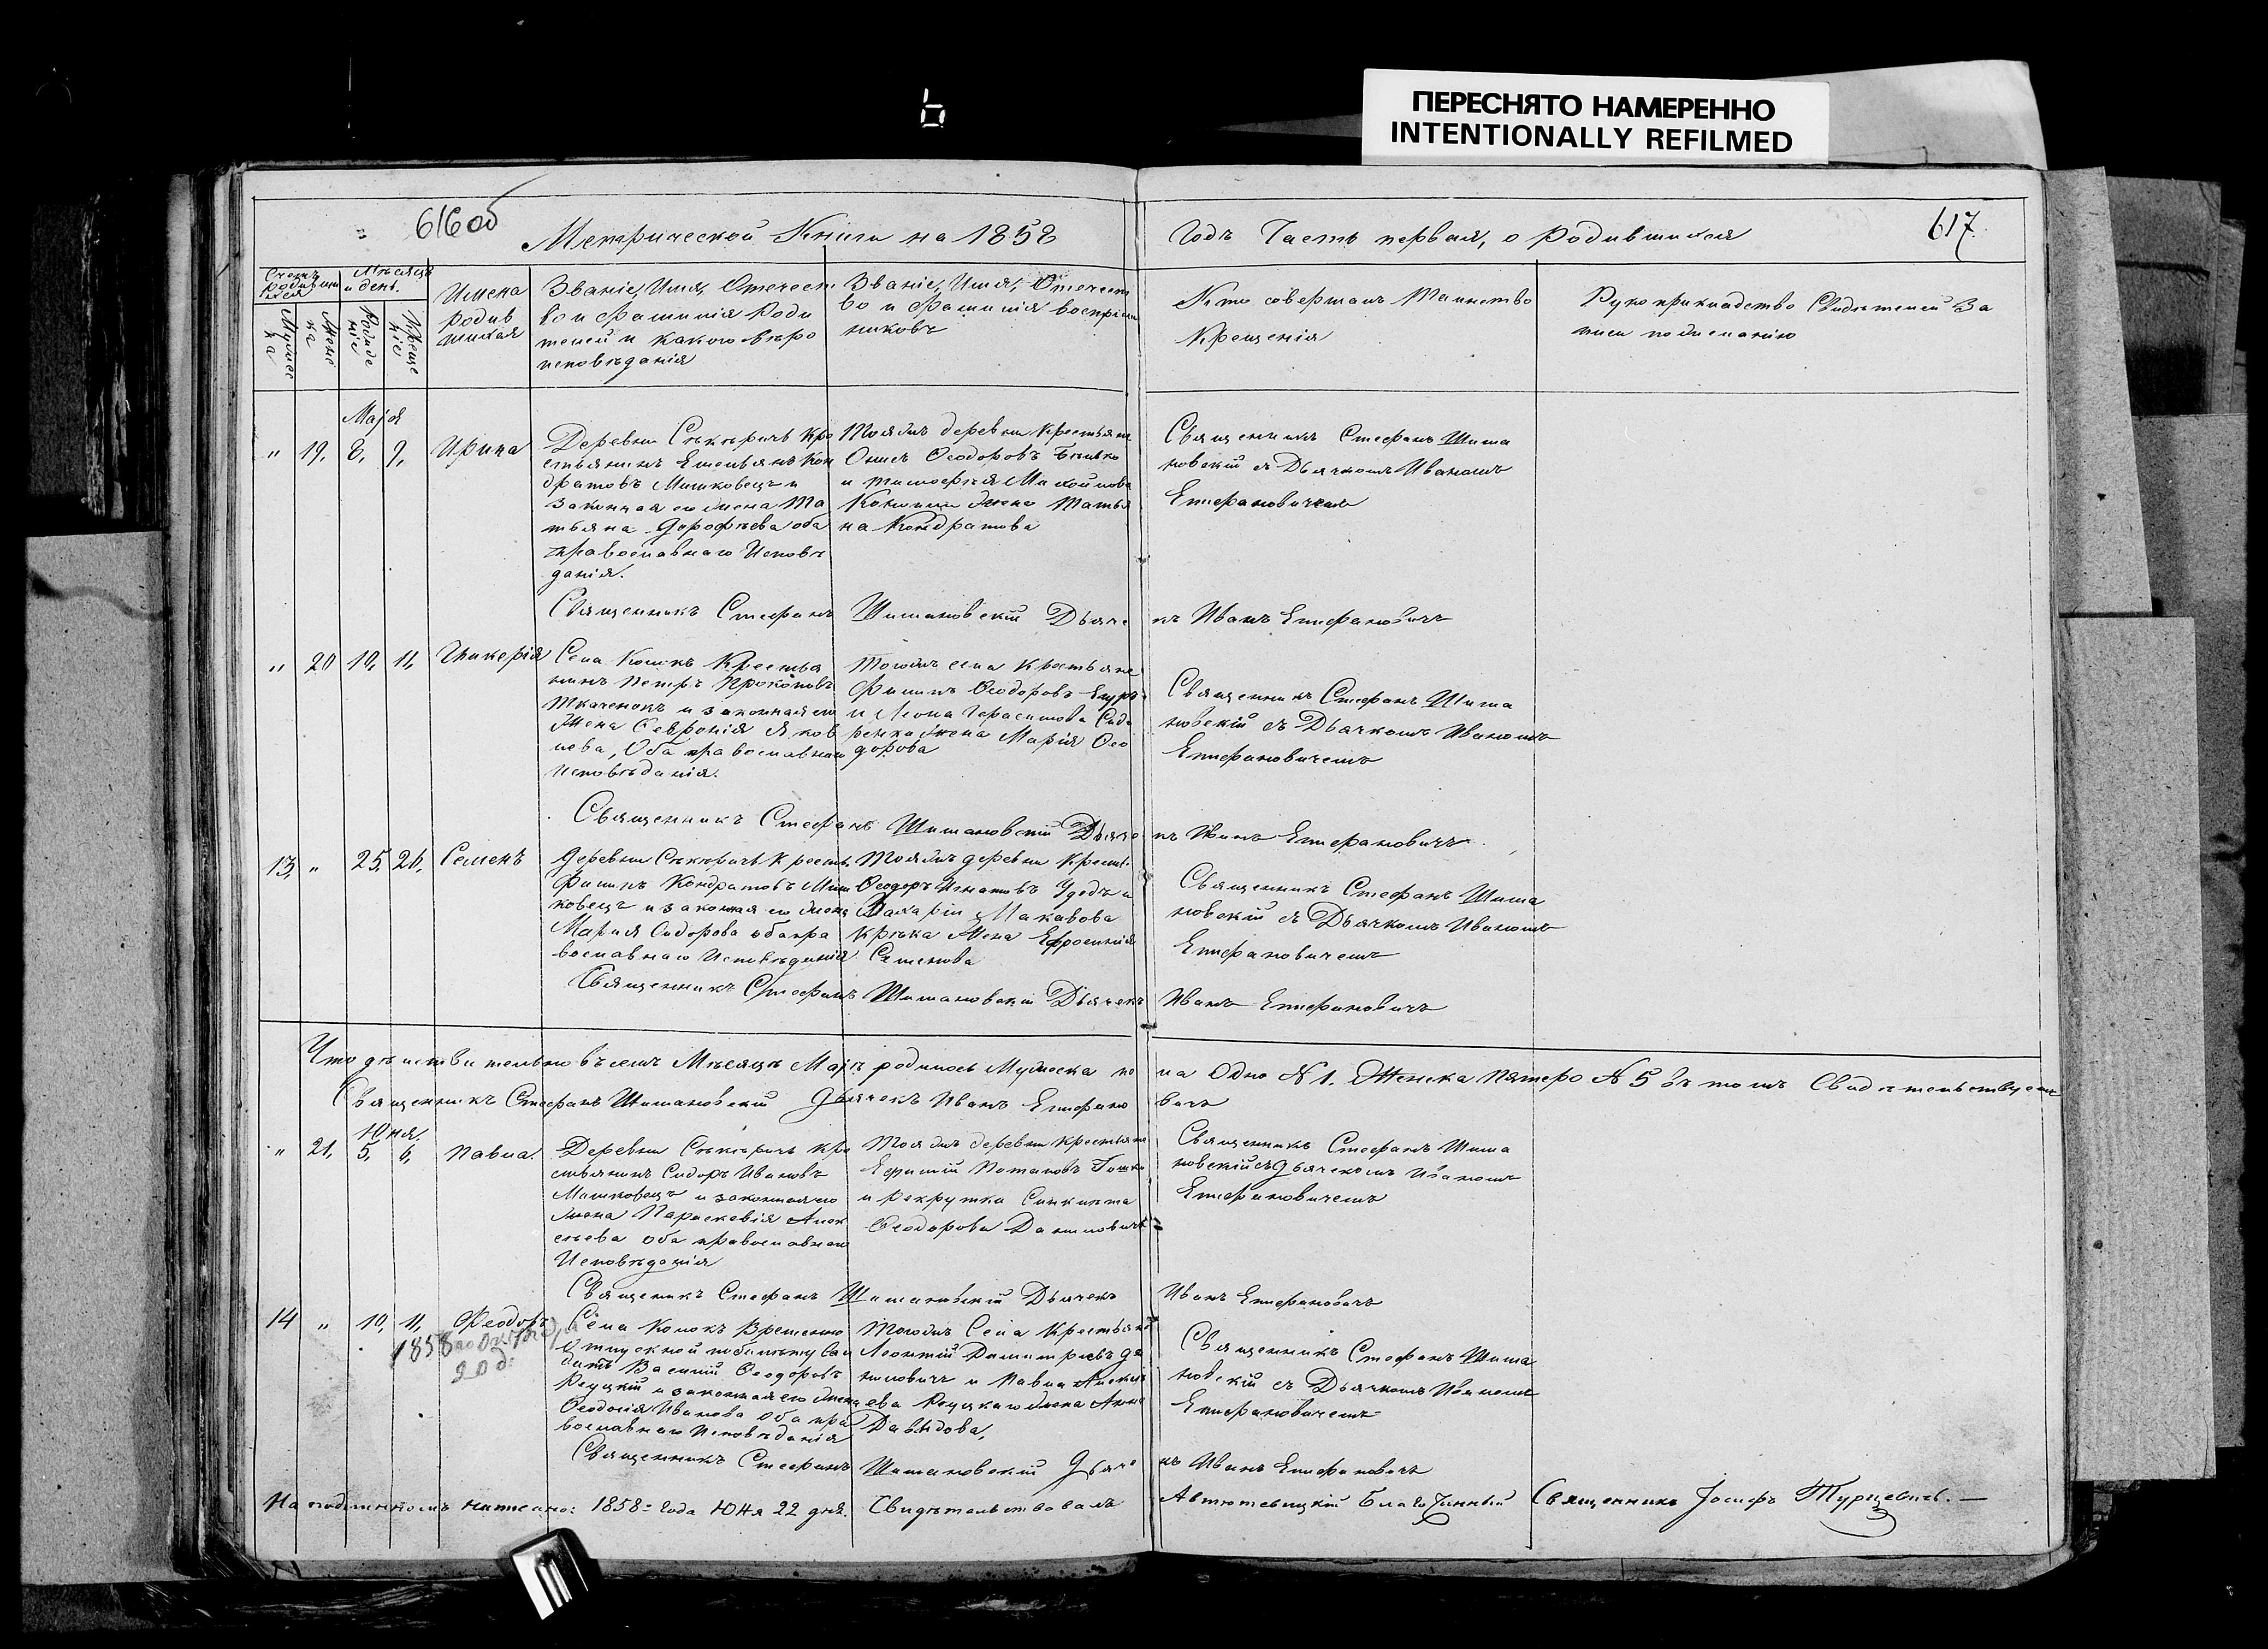 ПЕРЕСНЯТО НАМЕРЕННО
INTENTIONALLY REFILMED
616 об
617
Метрической Книги на 1858 Годъ Часть первая, о родившихся
Счетъ родившихся
Мѣсяцъ и день.
Мужеска
Женска
Рожденіе
Крещеніе
Имена
родив
шихся
Званіе, Имя, Отечест
во и Фамилія Роди
телей и какого вѣро
исповѣданія
Званіе, Имя, Отечест
во и Фамилія воспріем
никовъ
Кто совершалъ Таинство
Крещенія
Рукоприкладство Свидѣтелей За
писи по желанію
Маія
" 19, 8, 9, Ирина
Деревни Сѣкѣричъ Кре
стьянинъ Емельянъ Кон
дратовъ Машковецъ и
законная его жена Та
тьяна Дорофѣева оба
православнаго Исповѣ
данія.
Тояжъ деревни Крестьяне
Онисъ Ѳеодоровъ
и Тимофея Михайлова
жена Татья
на Кондратова
Священникъ Стефанъ Шима
новскій съ Дьячкомъ Иваномъ
Епифановичемъ
Священникъ Стефанъ Шимановскій Дьяче къ Иванъ Епифановичъ
" 20 10, 11, Гликерія
Села Колкъ Крестья
нинъ Петръ Прокоповъ
Ткаченокъ и законная его
Жена Февронія Яков
лева, Оба православнаго
Исповѣданія.
Тогожъ села Крестьяне
Филипъ Ѳеодоровъ
и Леона Герасимова Сидо
ренка жена Марія Ѳео
дорова
Священникъ Стефанъ Шима
новскій съ Дьячкомъ Иваномъ
Епифановичемъ
Священникъ Стефанъ Шимановскій Дьяче къ Иванъ Епифановичъ
13, " 25, 26, Семенъ
Деревни Сѣкѣричъ Кресть.
Филипъ Кондратовъ Маш
ковецъ и законная его жена
Марія Сидорова оба пра
вославнаго Исповѣданія
Тояжъ деревни Крест.
Ѳеодоръ Игнатовъ Удодъ и
Захарія Макавова
Крѣка Жена Ефросинія
Семенова
Священникъ Стефанъ Шима
новскій съ Дьячкомъ Иваномъ
Епифановичемъ
Священникъ Стефанъ Шимановскій Дьячекъ Иванъ Епифановичъ
Что дѣйствительно въ семъ Мѣсяцѣ Маіѣ родилось Мужеска по ла Одно № 1. Женска Пятеро № 5 въ томъ Свидѣтельствуемъ
Священникъ Стефанъ Шимановскій Дьячекъ Иванъ Епифано вичъ
Юня.
" 21, 5, 6, Павла.
Деревни Сѣкѣричъ кре
стьянинъ Сидоръ Ивановъ
Машковецъ и законная его
жена Параскевія Алек
сѣева оба православнаго
Исповѣданія
Тояжъ деревни крестьяне
Ефимій Потаповъ
и рекрутка
Ѳеодорова Даниловичъ
Священникъ Стефанъ Шима
новскій съ Дьячекомъ Иваномъ
Епифановичемъ
Священикъ Стефанъ Шимановскій Дьячекъ Иванъ Епифановичъ
14 " 10, 11, Феодоръ
1858
Села Колокъ Временно
отпускной по билету Сол
датъ Василій Ѳеодоровъ
Реуцкій и законная его жена
Ѳеодосія Иванова Оба пра
вославнаго Исповѣданія
Тогожъ Села Крестьяне
Леонтій Димитріевъ Да
ниловичъ и Павла Алексѣ
ева Реуцкаго жена Анна
Давыдова,
Священникъ Стефанъ Шима
новскій съ Дьячкомъ Иваномъ
Епифановичемъ
Священникъ Стефанъ Шимановскій Дьяче къ Иванъ Епифановичъ
На подлинномъ написано: 1858 года Юня 22 дня. Свидѣтельствовалъ Автютевицкій Благочинный Священникъ Іосифъ Турцевичъ.